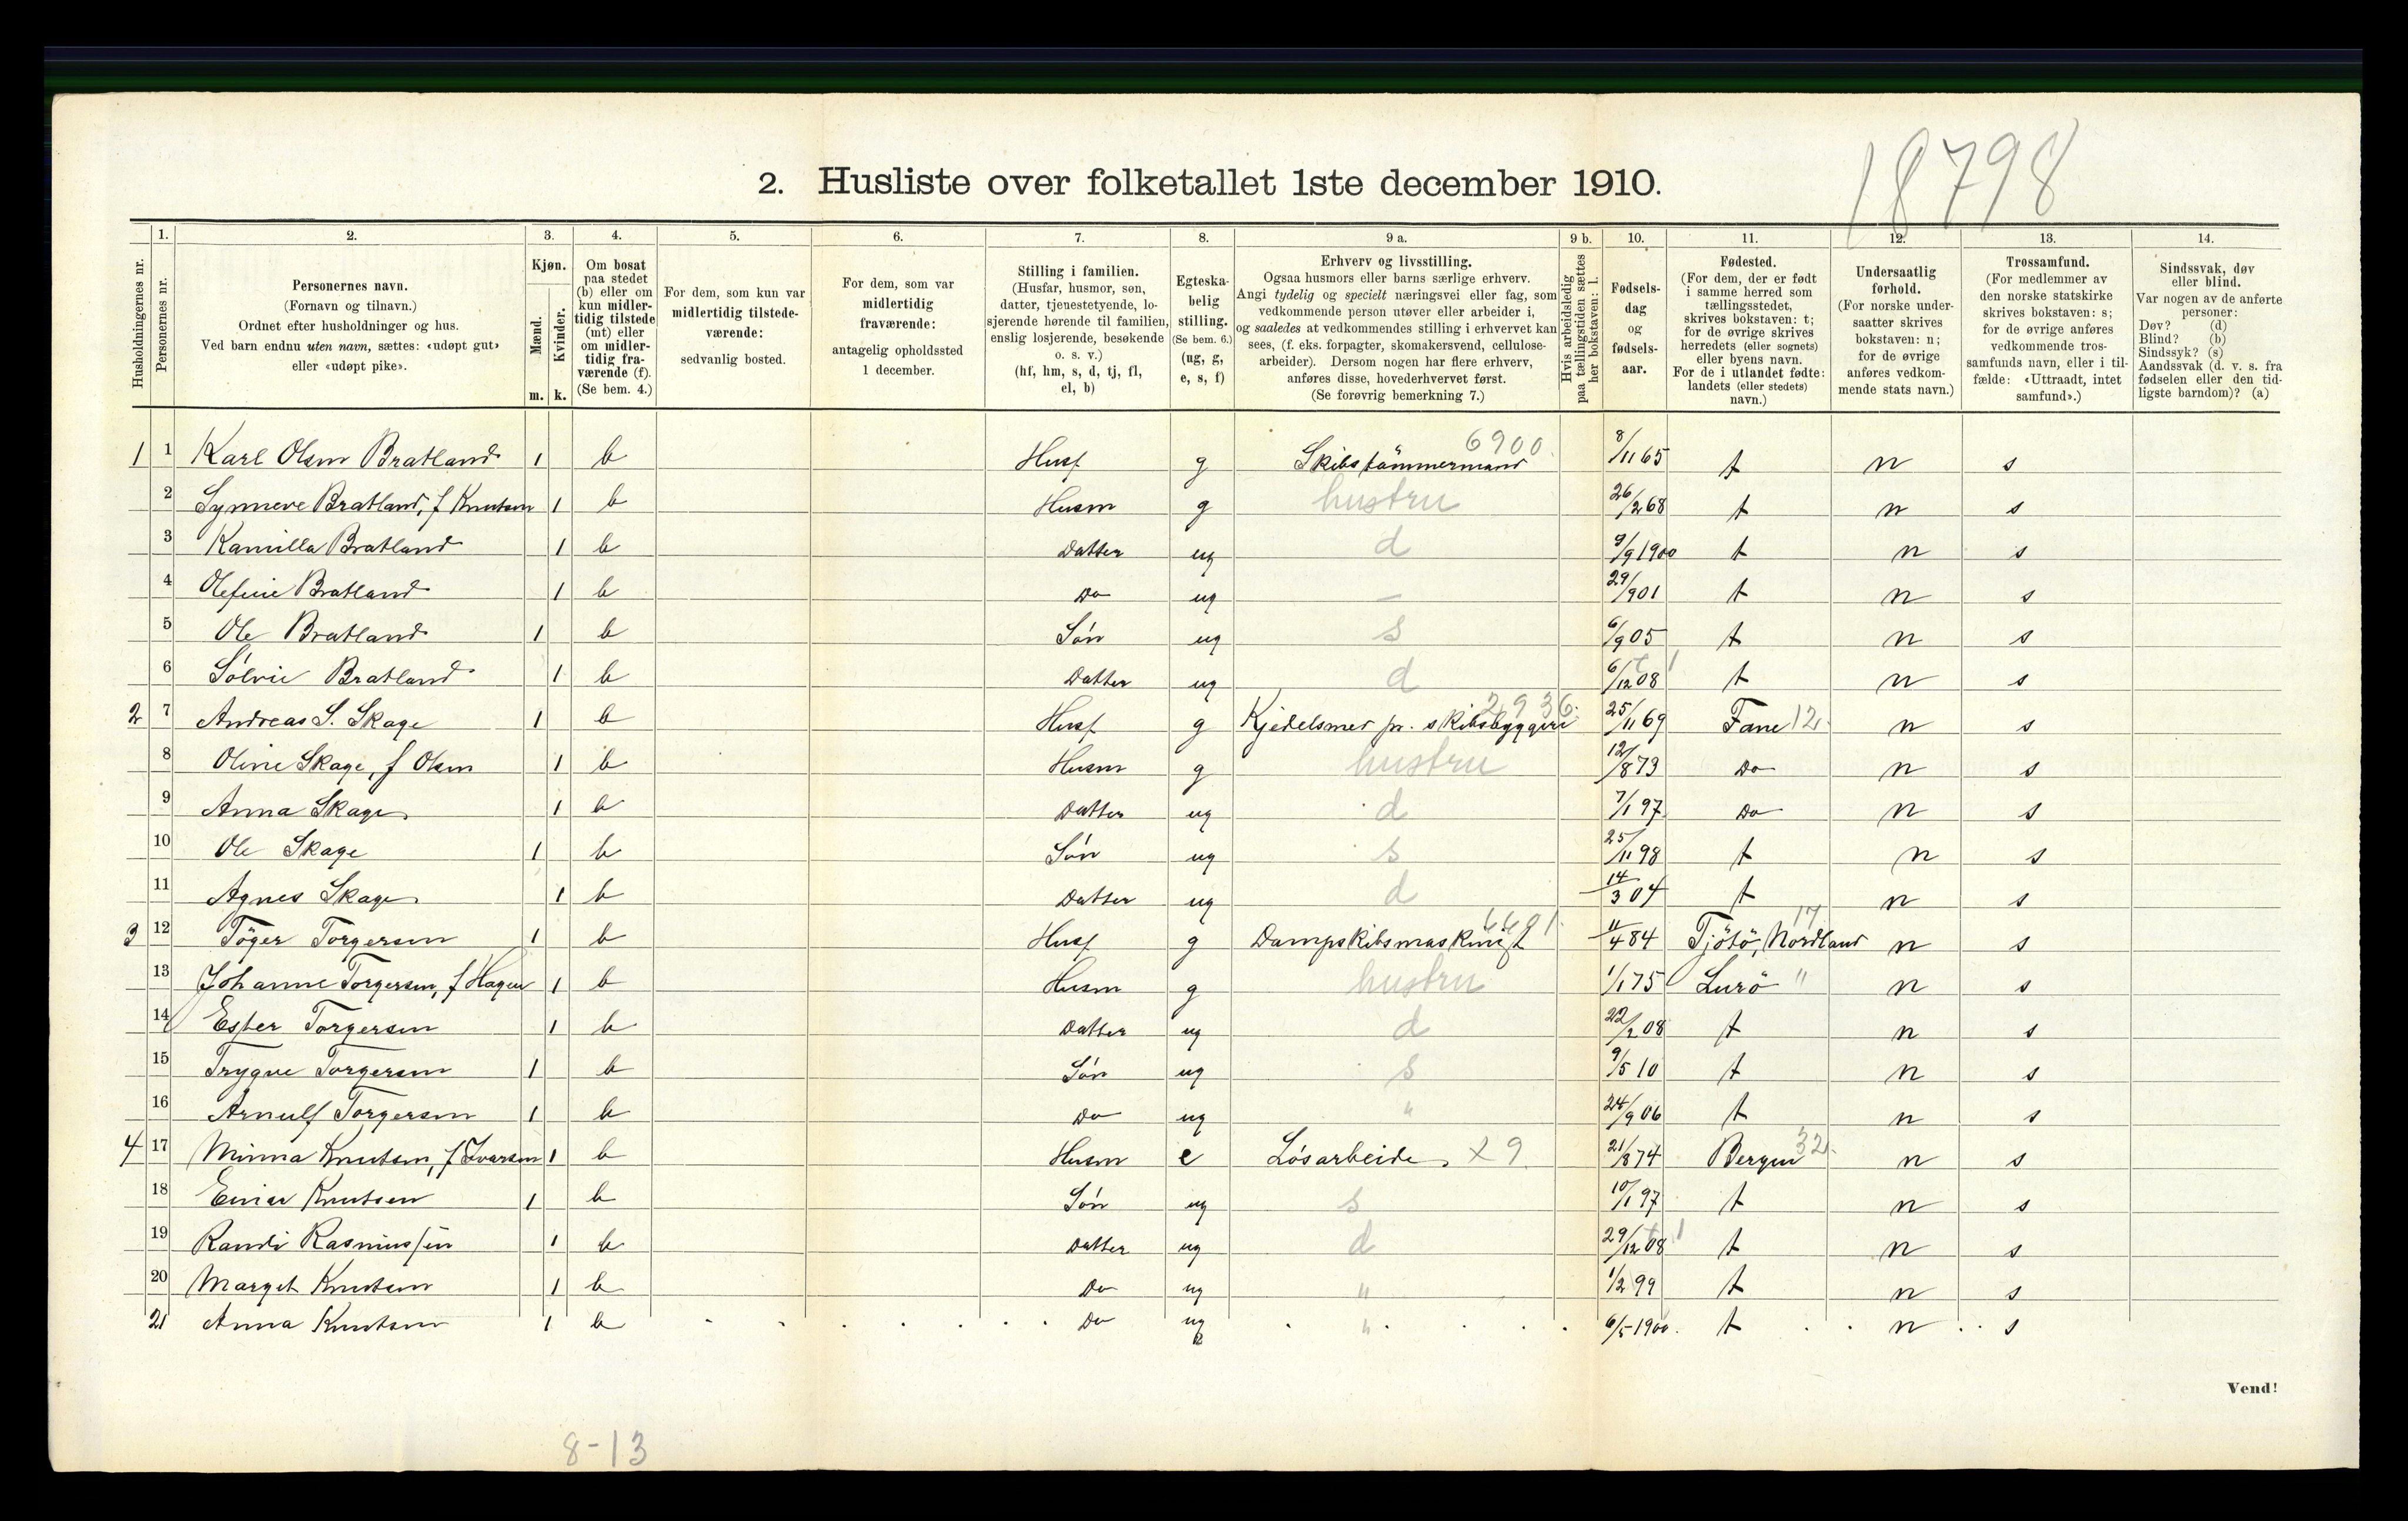 18798
2. Husliste over folketallet 1ste december 1910.
1. 2. 3. 4. 5. 6. 7. 8. 9 a. 9 b. 10. 11. 12. 13. 14.
Husholdningernes nr.
Personernes nr.
Personernes navn.
(Fornavn og tilnavn.)
Ordnet efter husholdninger og hus.
Ved barn endnu uten navn, sættes: «udøpt gut»
eller «udøpt pike».
Kjøn.
Mænd.
Kvinder.
m. k.
Om bosat
paa stedet
(b) eller om
kun midler-
tidig tilstede
(mt) eller
om midler-
tidig fra-
værende (f).
(Se bem. 4.)
For dem, som kun var
midlertidig tilstede-
værende:
sedvanlig bosted.
For dem, som var
midlertidig
fraværende:
antagelig opholdssted
1 december.
Stilling i familien.
(Husfar, husmor, søn,
datter, tjenestetyende, lo-
sjerende hørende til familien,
enslig losjerende, besøkende
o. s. v.)
(hf, hm, s, d, tj, fl,
el, b)
Egteska-
belig
stilling.
(Se bem. 6.)
(ug, g,
e, s, f)
Erhverv og livsstilling.
Ogsaa husmors eller barns særlige erhverv.
Angi tydelig og specielt næringsvei eller fag, som
vedkommende person utøver eller arbeider i,
og saaledes at vedkommendes stilling i erhvervet kan
sees, (f. eks. forpagter, skomakersvend, cellulose-
arbeider). Dersom nogen har flere erhverv,
anføres disse, hovederhvervet først.
(Se forøvrig bemerkning 7.)
Hvis arbeidsledig
paa tællingstiden sættes
her bokstaven: l.
Fødsels-
dag
og
fødsels-
aar.
Fødested.
(For dem, der er født
i samme herred som
tællingsstedet,
skrives bokstaven: t;
for de øvrige skrives
herredets (eller sognets)
eller byens navn.
For de i utlandet fødte:
landets (eller stedets)
navn.)
Undersaatlig
forhold.
(For norske under-
saatter skrives
bokstaven: n;
for de øvrige
anføres vedkom-
mende stats navn.)
Trossamfund.
(For medlemmer av
den norske statskirke
skrives bokstaven: s;
for de øvrige anføres
vedkommende tros-
samfunds navn, eller i til-
fælde: «Uttraadt, intet
samfund».)
Sindssvak, døv
eller blind.
Var nogen av de anførte
personer:
Døv? (d)
Blind? (b)
Sindssyk? (s)
Aandssvak (d. v. s. fra
fødselen eller den tid-
ligste barndom)? (a)
1 1 Karl Olsen Bratland 1 b Husf g Skibstömmermand 6900 8/11 65 t n s
2 Synneve Bratland, f Knutsen 1 b Husm g hustru 26/2 68 t n s
3 Kamilla Bratland 1 b Datter ug d 9/9 1900 t n s
4 Olefine Bratland 1 b Do ug — 29/9 01 t n s
5 Ole Bratland 1 b Sön ug s 6/9 05 t n s
6 Sólvie Bratland 1 b Datter ug d 6/12 08 t n s
2 7 Andreas S. Skage 1 b Husf g Kjedelsmed pr. skibsbyggeri 2936 25/11 69 Fane 12 n s
8 Oline Skage, f Olsen 1 b Husm g hustru 12/8 73 Do n s
9 Anna Skage 1 b Datter ug d 7/1 97 Do n s
10 Ole Skage 1 b Sön ug s 25/11 98 t n s
11 Agnes Skage 1 b Datter ug d 14/3 04 t n s
3 12 Töger Torgersen 1 b Husf g Dampskibsmaskinist 11/4 84 Tjötö, Nordland 17 n s
13 Johanne Torgersen, f Hagen 1 b Husm g hustru 1/1 75 Lurö " n s
14 Ester Torgersen 1 b Datter ug d 22/2 08 t n s
15 Trygve Torgersen 1 b Sön ug s 9/5 10 t n s
16 Arnulf Torgersen 1 b Do ug " 24/9 06 t n s
4 17 Minna Knutsen, f Ivarsen 1 b Husm e Lösarbeide x9 21/8 74 Bergen 32 n s
18 Einar Knutsen 1 b Sön ug s 10/1 97 t n s
19 Randi Rasmussen 1 b Datter ug d 29/12 08 t n s
20 Marget Knutsen 1 b Do ug " 1/2 99 t n s
21 Anna Knutsen 1 b Do ug " 6/5 1900. t n s
Vend!
8-13